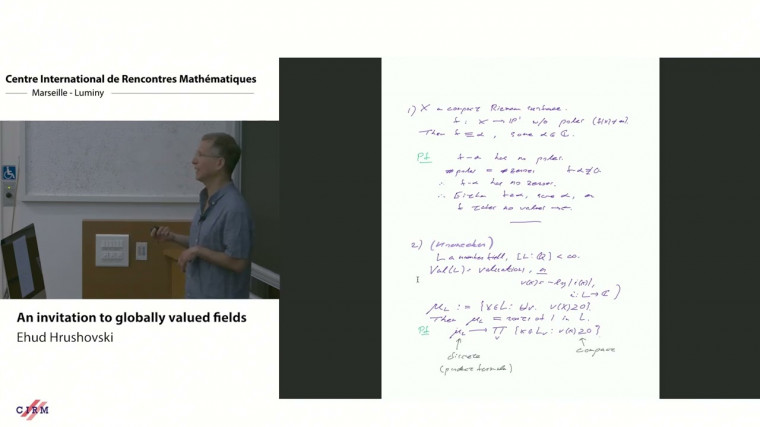 Centre International de Rencontres Mathématiques
Marseille - Luminy
An invitation to globally valued fields
Ehud Hrushovski
CIRM
1) X a compact Riemann surface.
f: X → P¹ w/o poles
Then f ≡ α, some α ∈ ℂ.
Pf f-α has no poles.
# poles = # zeros
∴ f-α has no zeros.
∴ Either f=α, some α, or
f takes no values
2) (Kronecker)
L a number field, [L:ℚ] < ∞.
Val(L) = valuations,
v(x) = -log|i(x)|,
i: L → ℂ
μ_L := {x∈L: ∀v. v(x)≥0}
Then μ_L = roots of 1 in L.
Pf μ_L → Π_v {x∈L_v: v(x)≥0}
discrete
compact
(product formula)